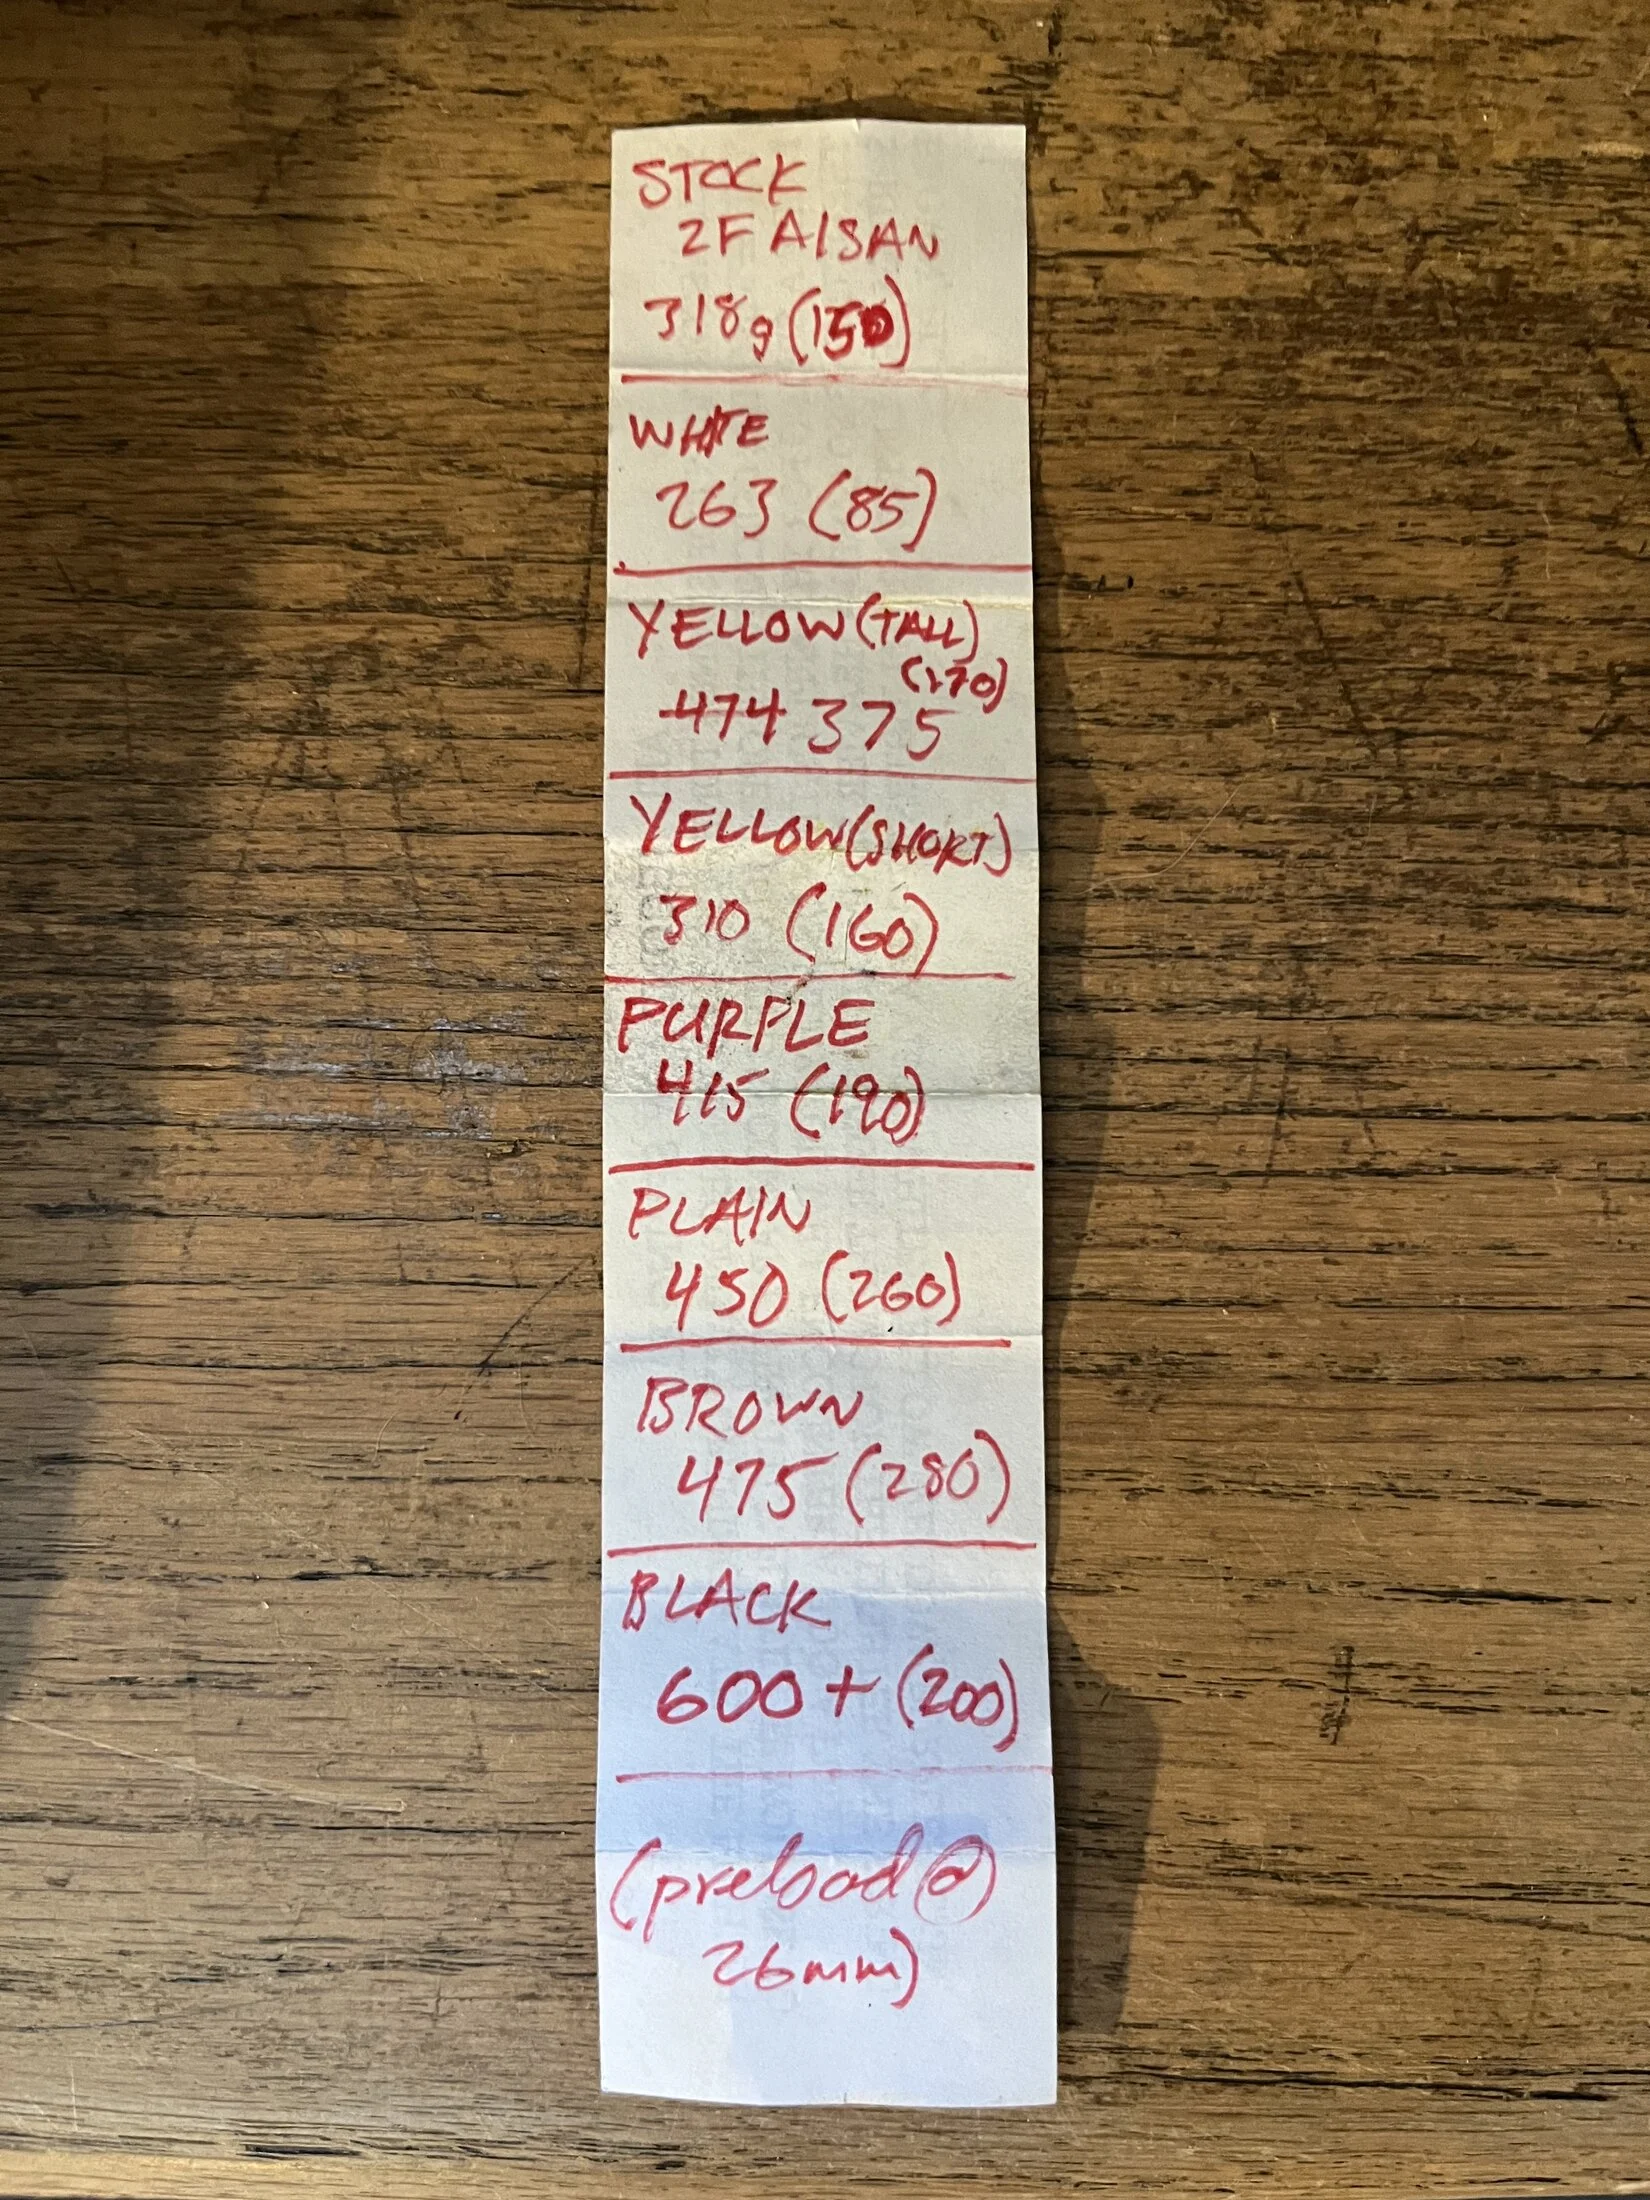 STOCK
2F AISAN
318g (150)
WHITE
263 (85)
YELLOW (TALL)
(170)
474 375
YELLOW (SHORT)
310 (160)
PURPLE
415 (190)
PLAIN
450 (260)
BROWN
475 (280)
BLACK
600+ (200)
(preload @
26mm)